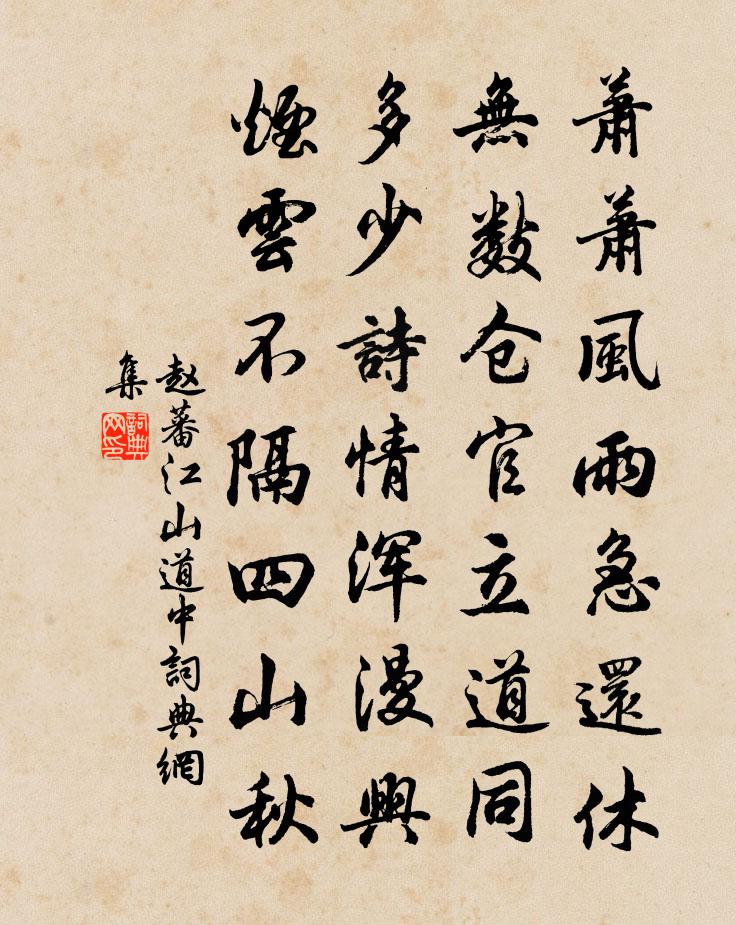 蕭蕭風雨急還休
無数仓官立道同
多少詩情浑漫興
煙雲不隔四山秋
赵蕃江山道中詞典網
集
詞典网印